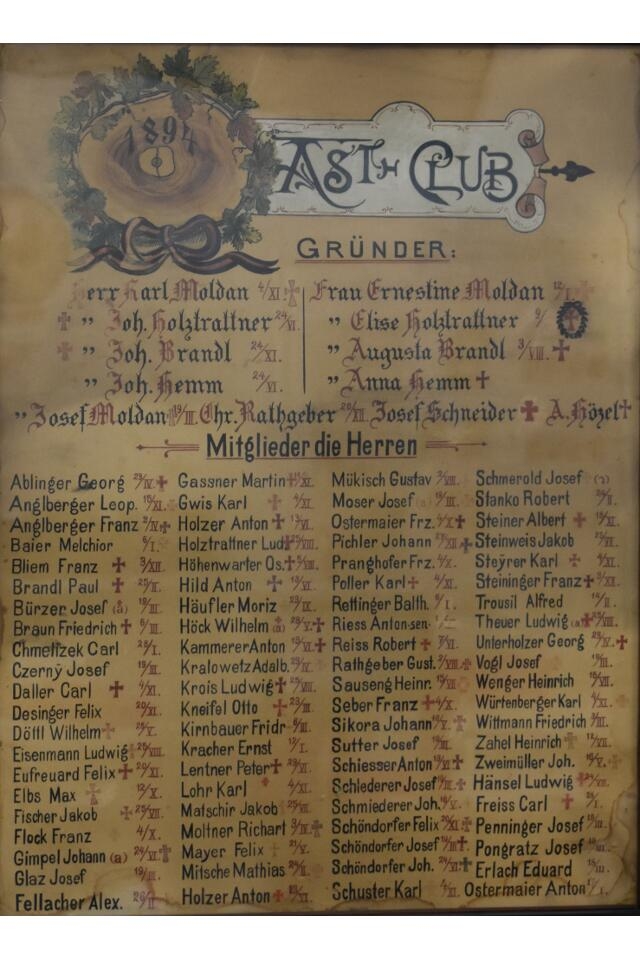 1894
AST-CLUB
GRÜNDER:
Herr Karl Moldan 4/XI.
" Joh. Holztrattner 24/VI.
" Joh. Brandl 24/XI.
" Joh. Hemm 24/VI.
Frau Ernestine Moldan 12/I.
" Elise Holztrattner 9/
" Augusta Brandl 3/VIII.
" Anna Hemm
" Josef Moldan 19/III. Chr. Rathgeber 20/XII. Josef Schneider A. Hözel
Mitglieder die Herren
Ablinger Georg 29/IV.
Anglberger Leop. 15/XI.
Anglberger Franz 2/IV
Baier Melchior 6/I.
Bliem Franz 3/XII
Brandl Paul
Bürzer Josef 19/III.
Braun Friedrich 6/III.
Chmelizek Carl 28/I.
Czerný Josef 19/III.
Daller Carl 4/XI.
Desinger Felix 20/XI.
Döttl Wilhelm
Eisenmann Ludwig
Eufreuard Felix 20/XI.
Elbs Max 12/X.
Fischer Jakob 25/VII.
Flock Franz 4/X.
Gimpel Johann (a) 24/VI.
Glaz Josef 19/III.
Fellacher Alex. 26/II.
Gassner Martin
Gwis Karl 4/XI.
Holzer Anton 13/VI.
Holztrattner Lud. 25/VIII.
Höhenwarter Os.
Hild Anton 13/VI.
Häufler Moriz 22/IX.
Höck Wilhelm
Kammerer Anton 13/VI.
Kralowetz Adalb.
Krois Ludwig 25/VIII.
Kneifel Otto
Kirnbauer Fridr.
Kracher Ernst 12/I.
Lentner Peter
Lohr Karl 4/XI.
Matschir Jakob 25/VII.
Moltner Richart
Mayer Felix
Mitsche Mathias
Holzer Anton
Mükisch Gustav 2/VIII.
Moser Josef 19/III.
Ostermaier Frz. 4/X
Pichler Johann 27/XII
Pranghofer Frz. 4/X.
Poller Karl 4/XI.
Rettinger Balth. 6/I.
Riess Anton sen.
Reiss Robert 7/VI.
Rathgeber Gust. 2/VIII.
Sauseng Heinr. 15/VII
Seber Franz 4/X.
Sikora Johann
Sutter Josef 19/III.
Schiesser Anton 13/VI
Schlederer Josef 19/III.
Schmiederer Joh.
Schöndorfer Felix 20/XI
Schöndorfer Josef 19/III
Schöndorfer Joh. 24/VI.
Schuster Karl 4/XI.
Schmerold Josef
Stanko Robert
Steiner Albert 15/XI.
Steinweis Jakob
Steyrer Karl 4/XI.
Steininger Franz
Trousil Alfred
Theuer Ludwig
Unterholzer Georg
Vogl Josef 19/III.
Wenger Heinrich 15/VII.
Würtenberger Karl 4/XI.
Wittmann Friedrich
Zahel Heinrich
Zweimüller Joh.
Hänsel Ludwig
Freiss Carl
Penninger Josef 19/III.
Pongratz Josef
Erlach Eduard
Ostermaier Anton